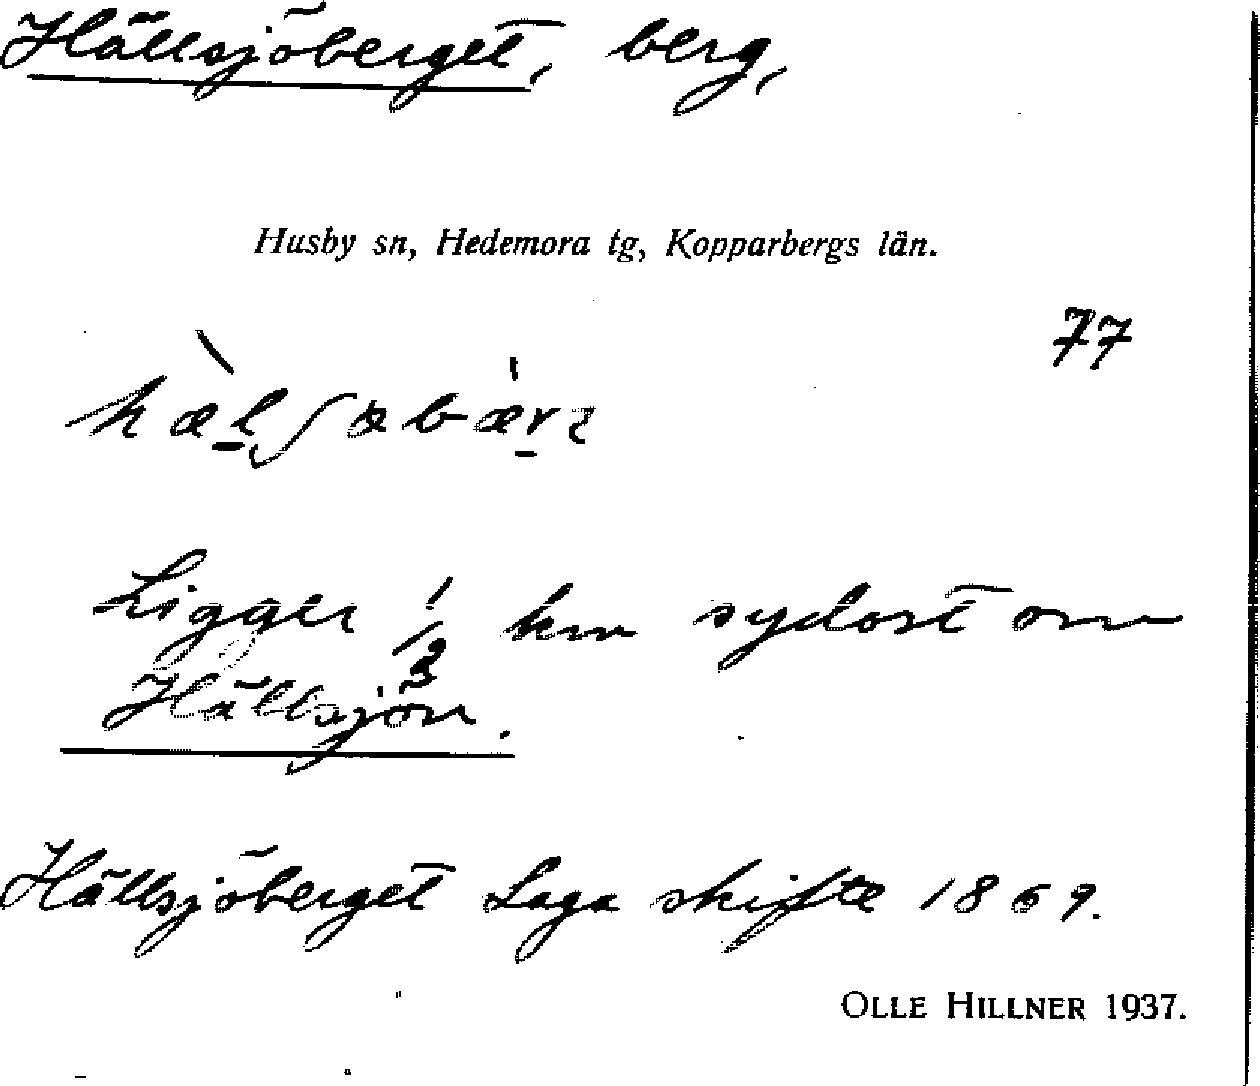 Hällsjöberget, berg,
Husby sn, Hedemora tg, Kopparbergs län.
77
Ligger 1/3 km sydost om
Hällsjön.
Hällsjöberget Laga skifte 1869.
OLLE HILLNER 1937.